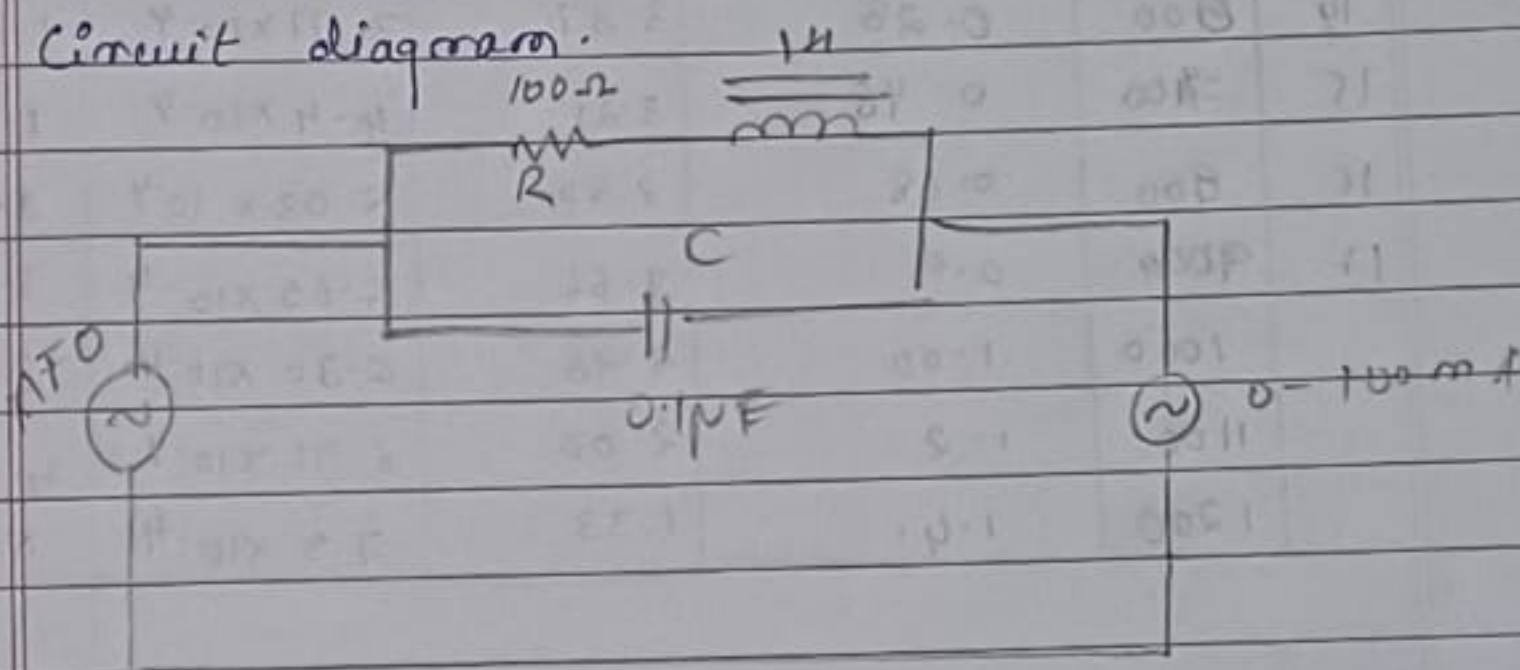 Circuit diagram.
1H
100Ω
R
C
AFO
0.1μF
0-100mA